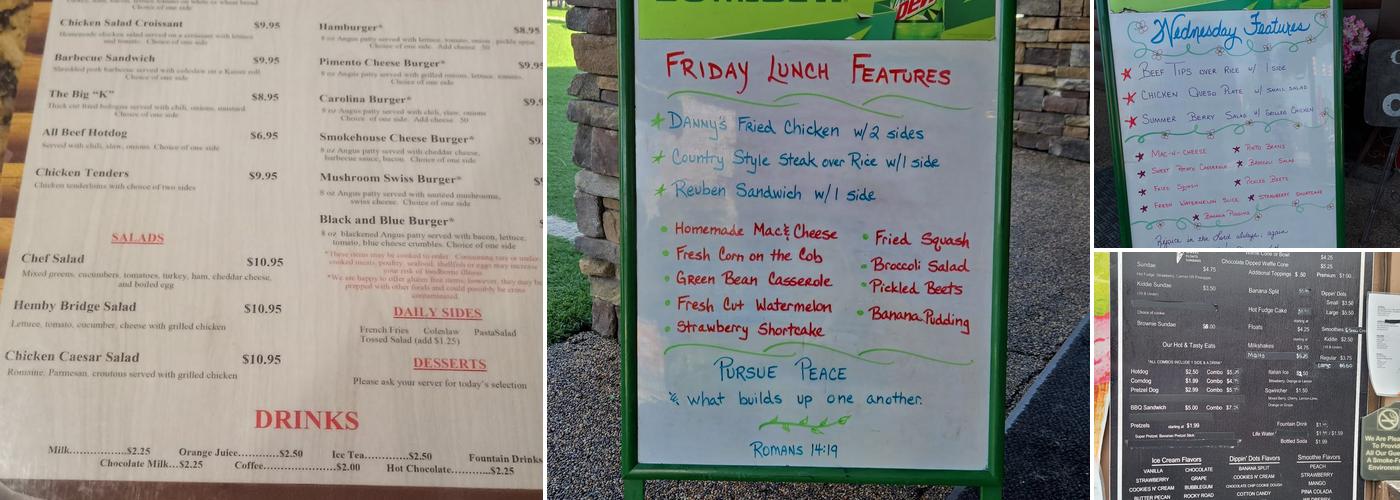 Chicken Salad Croissant $9.95
Homemade chicken salad served on a croissant with lettuce
and tomato. Choice of one side
Barbecue Sandwich $9.95
Shredded pork barbecue served with coleslaw on a Kaiser roll
Choice of one side
The Big “K” $8.95
Thick cut fried bologna served with chili, onions, mustard
Choice of one side
All Beef Hotdog $6.95
Served with chili, slaw, onions. Choice of one side
Chicken Tenders $9.95
Chicken tenderloins with choice of two sides
SALADS
Chef Salad $10.95
Mixed greens, cucumbers, tomatoes, turkey, ham, cheddar cheese,
and boiled egg
Hemby Bridge Salad $10.95
Lettuce, tomato, cucumber, cheese with grilled chicken
Chicken Caesar Salad $10.95
Romaine, Parmesan, croutons served with grilled chicken
Hamburger* $8.95
8 oz Angus patty served with lettuce, tomato, onion, pickle spear
Choice of one side. Add cheese .50
Pimento Cheese Burger* $9.95
8 oz Angus patty served with grilled onions, lettuce, tomato.
Choice of one side
Carolina Burger* $9.
8 oz Angus patty served with chili, slaw, onions
Choice of one side. Add cheese .50
Smokehouse Cheese Burger* $9.
8 oz Angus patty served with cheddar cheese,
barbecue sauce, bacon. Choice of one side
Mushroom Swiss Burger* $
8 oz Angus patty served with sauteed mushrooms,
swiss cheese. Choice of one side
Black and Blue Burger* $
8 oz blackened Angus patty served with bacon, lettuce,
tomato, blue cheese crumbles. Choice of one side
*These items may be cooked to order. Consuming raw or under
cooked meats, poultry, seafood, shellfish or eggs may increase
your risk of foodborne illness
*We are happy to offer gluten free items; however, they may be
prepped with other foods and could possibly be cross
contaminated.
DAILY SIDES
French Fries Coleslaw PastaSalad
Tossed Salad (add $1.25)
DESSERTS
Please ask your server for today’s selection
DRINKS
Milk $2.25 Orange Juice $2.50 Ice Tea $2.50 Fountain Drinks
Chocolate Milk...$2.25 Coffee $2.00 Hot Chocolate $2.25
DEW
FRIDAY LUNCH FEATURES
DANNY'S Fried Chicken w/2 sides
Country Style Steak over Rice w/1 side
Reuben Sandwich w/1 side
Homemade Mac & Cheese
Fresh Corn on the Cob
Green Bean Casserole
Fresh Cut Watermelon
Strawberry Shortcake
Fried Squash
Broccoli Salad
Pickled Beets
Banana Pudding
PURSUE PEACE
& what builds up one another.
ROMANS 14:19
Wednesday Features
BEEF TIPS OVER RICE W/ 1 SIDE
CHICKEN QUESO PLATE W/ SMALL SALAD
SUMMER BERRY SALAD W/ GRILLED CHICKEN
MAC-N-CHEESE
SWEET POTATO CASSEROLE
FRIED SQUASH
FRESH WATERMELON SLICE
PINTO BEANS
BROCCOLI SALAD
PICKLED BEETS
STRAWBERRY SHORTCAKE
BANANA PUDDING
Rejoice in the Lord always, again
Sundae $4.75
Kiddie Sundae $3.50
Brownie Sundae
Chocolate Dipped Waffle Cone $5.25
Additional Toppings $.50 Premium $1.00
Banana Split
Hot Fudge Cake
Floats $4.25
Milkshakes $4.75
Malts
Dippin' Dots
Small $3.50
Large $5.50
Smoothies
Kiddie $2.50
Regular $3.75
Large
Our Hot & Tasty Eats
*ALL COMBOS INCLUDE 1 SIDE & A DRINK*
Hotdog $2.50 Combo
Corndog $1.99 Combo
Pretzel Dog $2.99 Combo
BBQ Sandwich $5.00 Combo
Pretzels starting at $1.99
Italian Ice
Sqwincher $1.50
Fountain Drink
Life Water
Bottled Soda $1.99
Ice Cream Flavors
VANILLA CHOCOLATE
STRAWBERRY GRAPE
COOKIES N' CREAM BUBBLEGUM
BUTTER PECAN ROCKY ROAD
Dippin' Dots Flavors
BANANA SPLIT
COOKIES N' CREAM
CHOCOLATE CHIP COOKIE DOUGH
COTTON CANDY
Smoothie Flavors
PEACH
STRAWBERRY
MANGO
PINA COLADA
WILDBERRY
We Are Pleased
To Provide
All Our Guests
A Smoke-Free
Environment